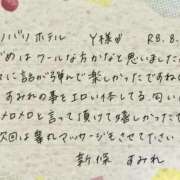 リバリホテル Y様 R8.8.
めはクールな方かなと思いました
に話が弾んで楽しかったですね
すみれの事をエロい体してる、匂い
メロメロと言って頂けて嬉しかったで
次回は睾丸マッサージもさせてください
新塚 すみれ